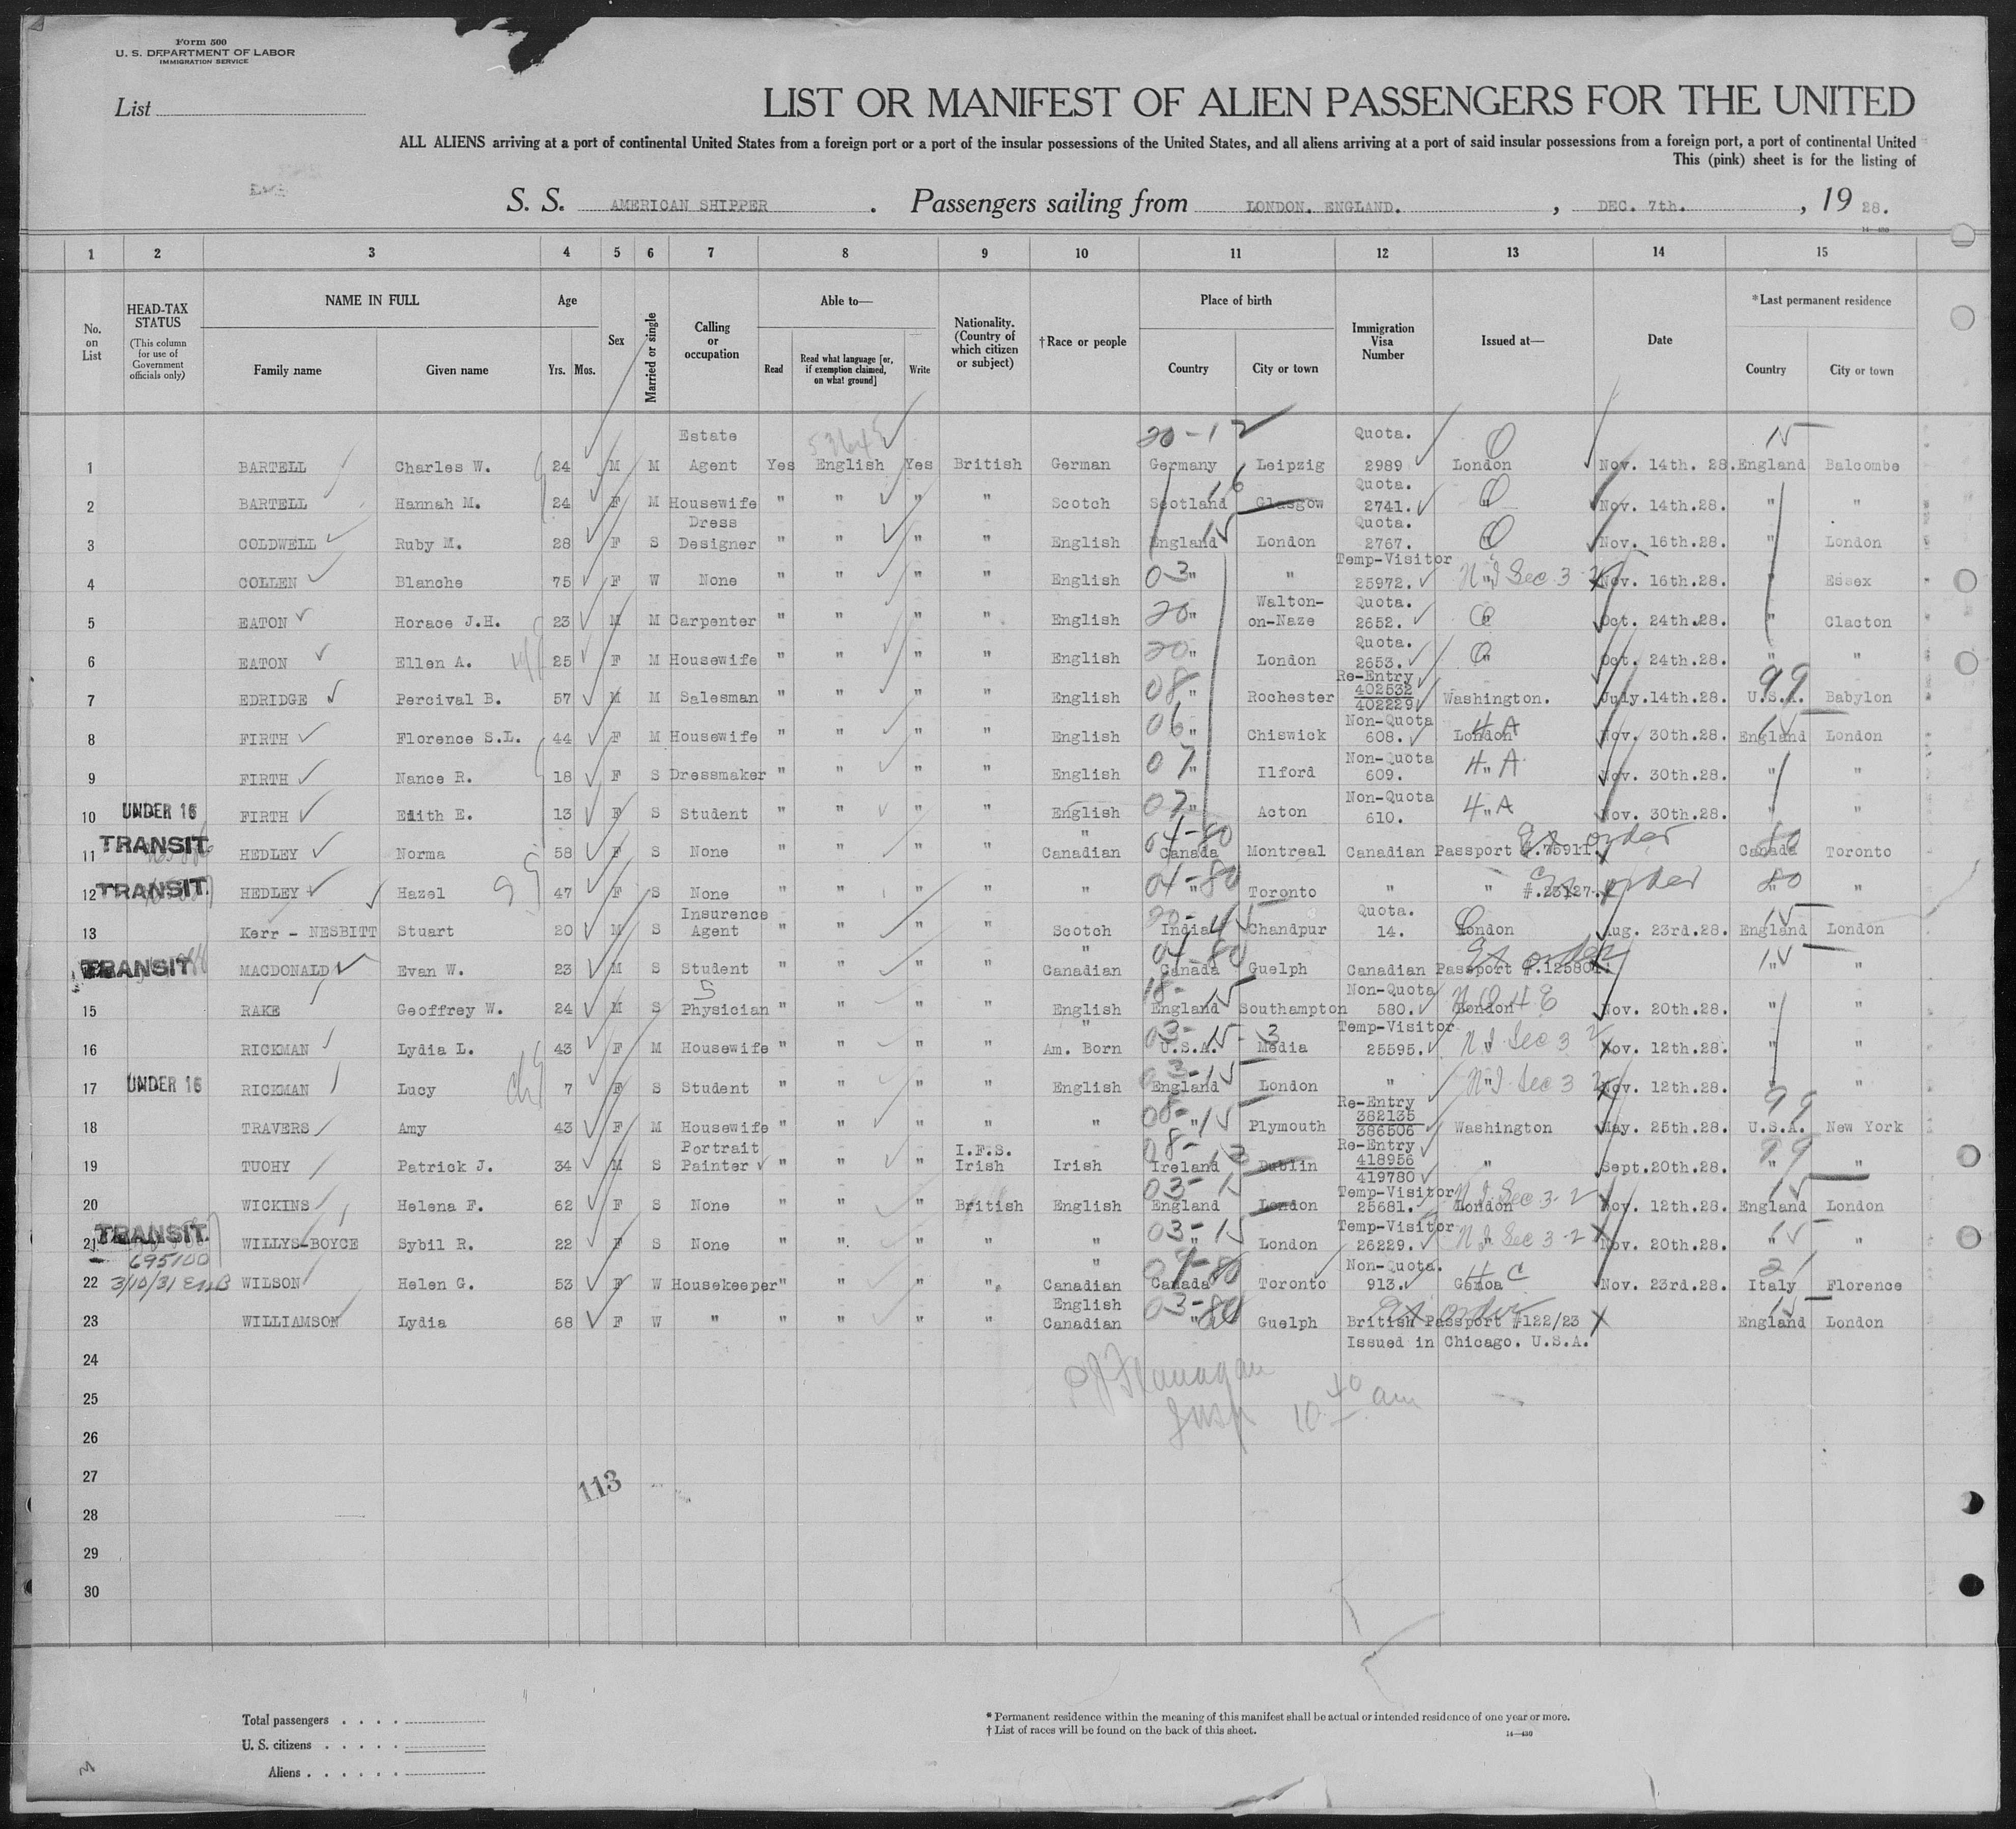 Form 500
U. S. DEPARTMENT OF LABOR
IMMIGRATION SERVICE
List
LIST OR MANIFEST OF ALIEN PASSENGERS FOR THE UNITED
ALL ALIENS arriving at a port of continental United States from a foreign port or a port of the insular possessions of the United States, and all aliens arriving at a port of said insular possessions from a foreign port, a port of continental United
This (pink) sheet is for the listing of
S. S. AMERICAN SHIPPER . Passengers sailing from LONDON. ENGLAND. , DEC. 7th. , 19 28.
14—430
1 2 3 4 5 6 7 8 9 10 11 12 13 14 15
No. on List
HEAD-TAX STATUS (This column for use of Government officials only)
NAME IN FULL
Family name Given name
Age
Yrs. Mos.
Sex
Married or single
Calling or occupation
Able to—
Read Read what language [or, if exemption claimed, on what ground] Write
Nationality. (Country of which citizen or subject)
†Race or people
Place of birth
Country City or town
Immigration Visa Number
Issued at—
Date
*Last permanent residence
Country City or town
53645
20-12 Quota. Q 15
1 BARTELL Charles W. 24 M M Estate Agent Yes English Yes British German Germany Leipzig 2989 London Nov. 14th. 28. England Balcombe
2 BARTELL Hannah M. 24 F M Housewife " " " " Scotch Scotland 16 Glasgow Quota. 2741. Q " Nov. 14th.28. " "
3 COLDWELL Ruby M. 28 F S Dress Designer " " " " English England 15 London Quota. 2767. Q " Nov. 16th.28. " London
4 COLLEN Blanche 75 F W None " " " " English 03 " " Temp-Visitor 25972. N.I Sec 3-2 " Nov. 16th.28. " Essex
5 EATON Horace J.H. 23 M M Carpenter " " " " English 20 " Walton-on-Naze Quota. 2652. Q " Oct. 24th.28. " Clacton
6 EATON Ellen A. 25 F M Housewife " " " " English 20 " London Quota. 2653. Q " Oct. 24th.28. " "
7 EDRIDGE Percival B. 57 M M Salesman " " " " English 08 " Rochester Re-Entry 402532 402229 Washington. July.14th.28. 99 U.S.A. Babylon
8 FIRTH Florence S.L. 44 F M Housewife " " " " English 06 " Chiswick Non-Quota 608. 4 A London Nov. 30th.28. 15 England London
9 FIRTH Nance R. 18 F S Dressmaker " " " " English 07 " Ilford Non-Quota 609. 4 A " Nov. 30th.28. " "
10 UNDER 16 FIRTH Edith E. 13 F S Student " " " " English 07 " Acton Non-Quota 610. 4 A " Nov. 30th.28. " "
11 TRANSIT. HEDLEY Norma 58 F S None " " " " " Canadian 04-80 Canada Montreal Canadian Passport #.75911. Ex order 80 Canada Toronto
12 TRANSIT. HEDLEY Hazel 47 F S None " " " " " 04-80 " Toronto " " #.23127. Ex order 80 " "
13 Kerr - NESBITT Stuart 20 M S Insurence Agent " " " " Scotch 20-45 India Chandpur Quota. 14. Q London Aug. 23rd.28. 15 England London
TRANSIT MACDONALD Evan W. 23 M S Student " " " " " Canadian 04-80 Canada Guelph Canadian Passport #.125801. Ex order 15 " "
15 RAKE Geoffrey W. 24 M S 5 Physician " " " " English 18-15 England Southampton Non-Quota 580. N Q 4 E London Nov. 20th.28. " "
16 RICKMAN Lydia L. 43 F M Housewife " " " " " Am. Born 03-15-3 U.S.A. Media Temp-Visitor 25595. N.I Sec 3 2 " Nov. 12th.28. " "
17 UNDER 16 RICKMAN Lucy 7 F S Student " " " " English 03-15 England London " N.I Sec 3 2 " Nov. 12th.28. " "
18 TRAVERS Amy 43 F M Housewife " " " " " 08-15 " Plymouth Re-Entry 382135 386506 Washington May. 25th.28. 99 U.S.A. New York
19 TUOHY Patrick J. 34 M S Portrait Painter " " " I.F.S. Irish Irish 08-13 Ireland Dublin Re-Entry 418956 419780 " Sept.20th.28. 99 " "
20 WICKINS Helena F. 62 F S None " " " British English 03-15 England London Temp-Visitor 25681. N.I Sec 3-2 London Nov. 12th.28. 15 England London
21 TRANSIT. WILLYS-BOYCE Sybil R. 22 F S None " " " " " 03-15 " London Temp-Visitor 26229. N.I Sec 3-2 " Nov. 20th.28. 15 " "
695100
22 3/10/31 WILSON Helen G. 53 F W Housekeeper " " " " " Canadian 04-80 Canada Toronto Non-Quota. 913. 4 C Genoa Nov. 23rd.28. 21 Italy Florence
23 WILLIAMSON Lydia 68 F W " " " " " English Canadian 03-80 " Guelph British Passport #122/23 Ex order 15 England London
Issued in Chicago. U.S.A.
24
PJ Flanagan
25
Insp 10 40 am
26
27
113
28
29
30
Total passengers . . . .
U. S. citizens . . . . .
Aliens . . . . . .
* Permanent residence within the meaning of this manifest shall be actual or intended residence of one year or more.
† List of races will be found on the back of this sheet.
14—430